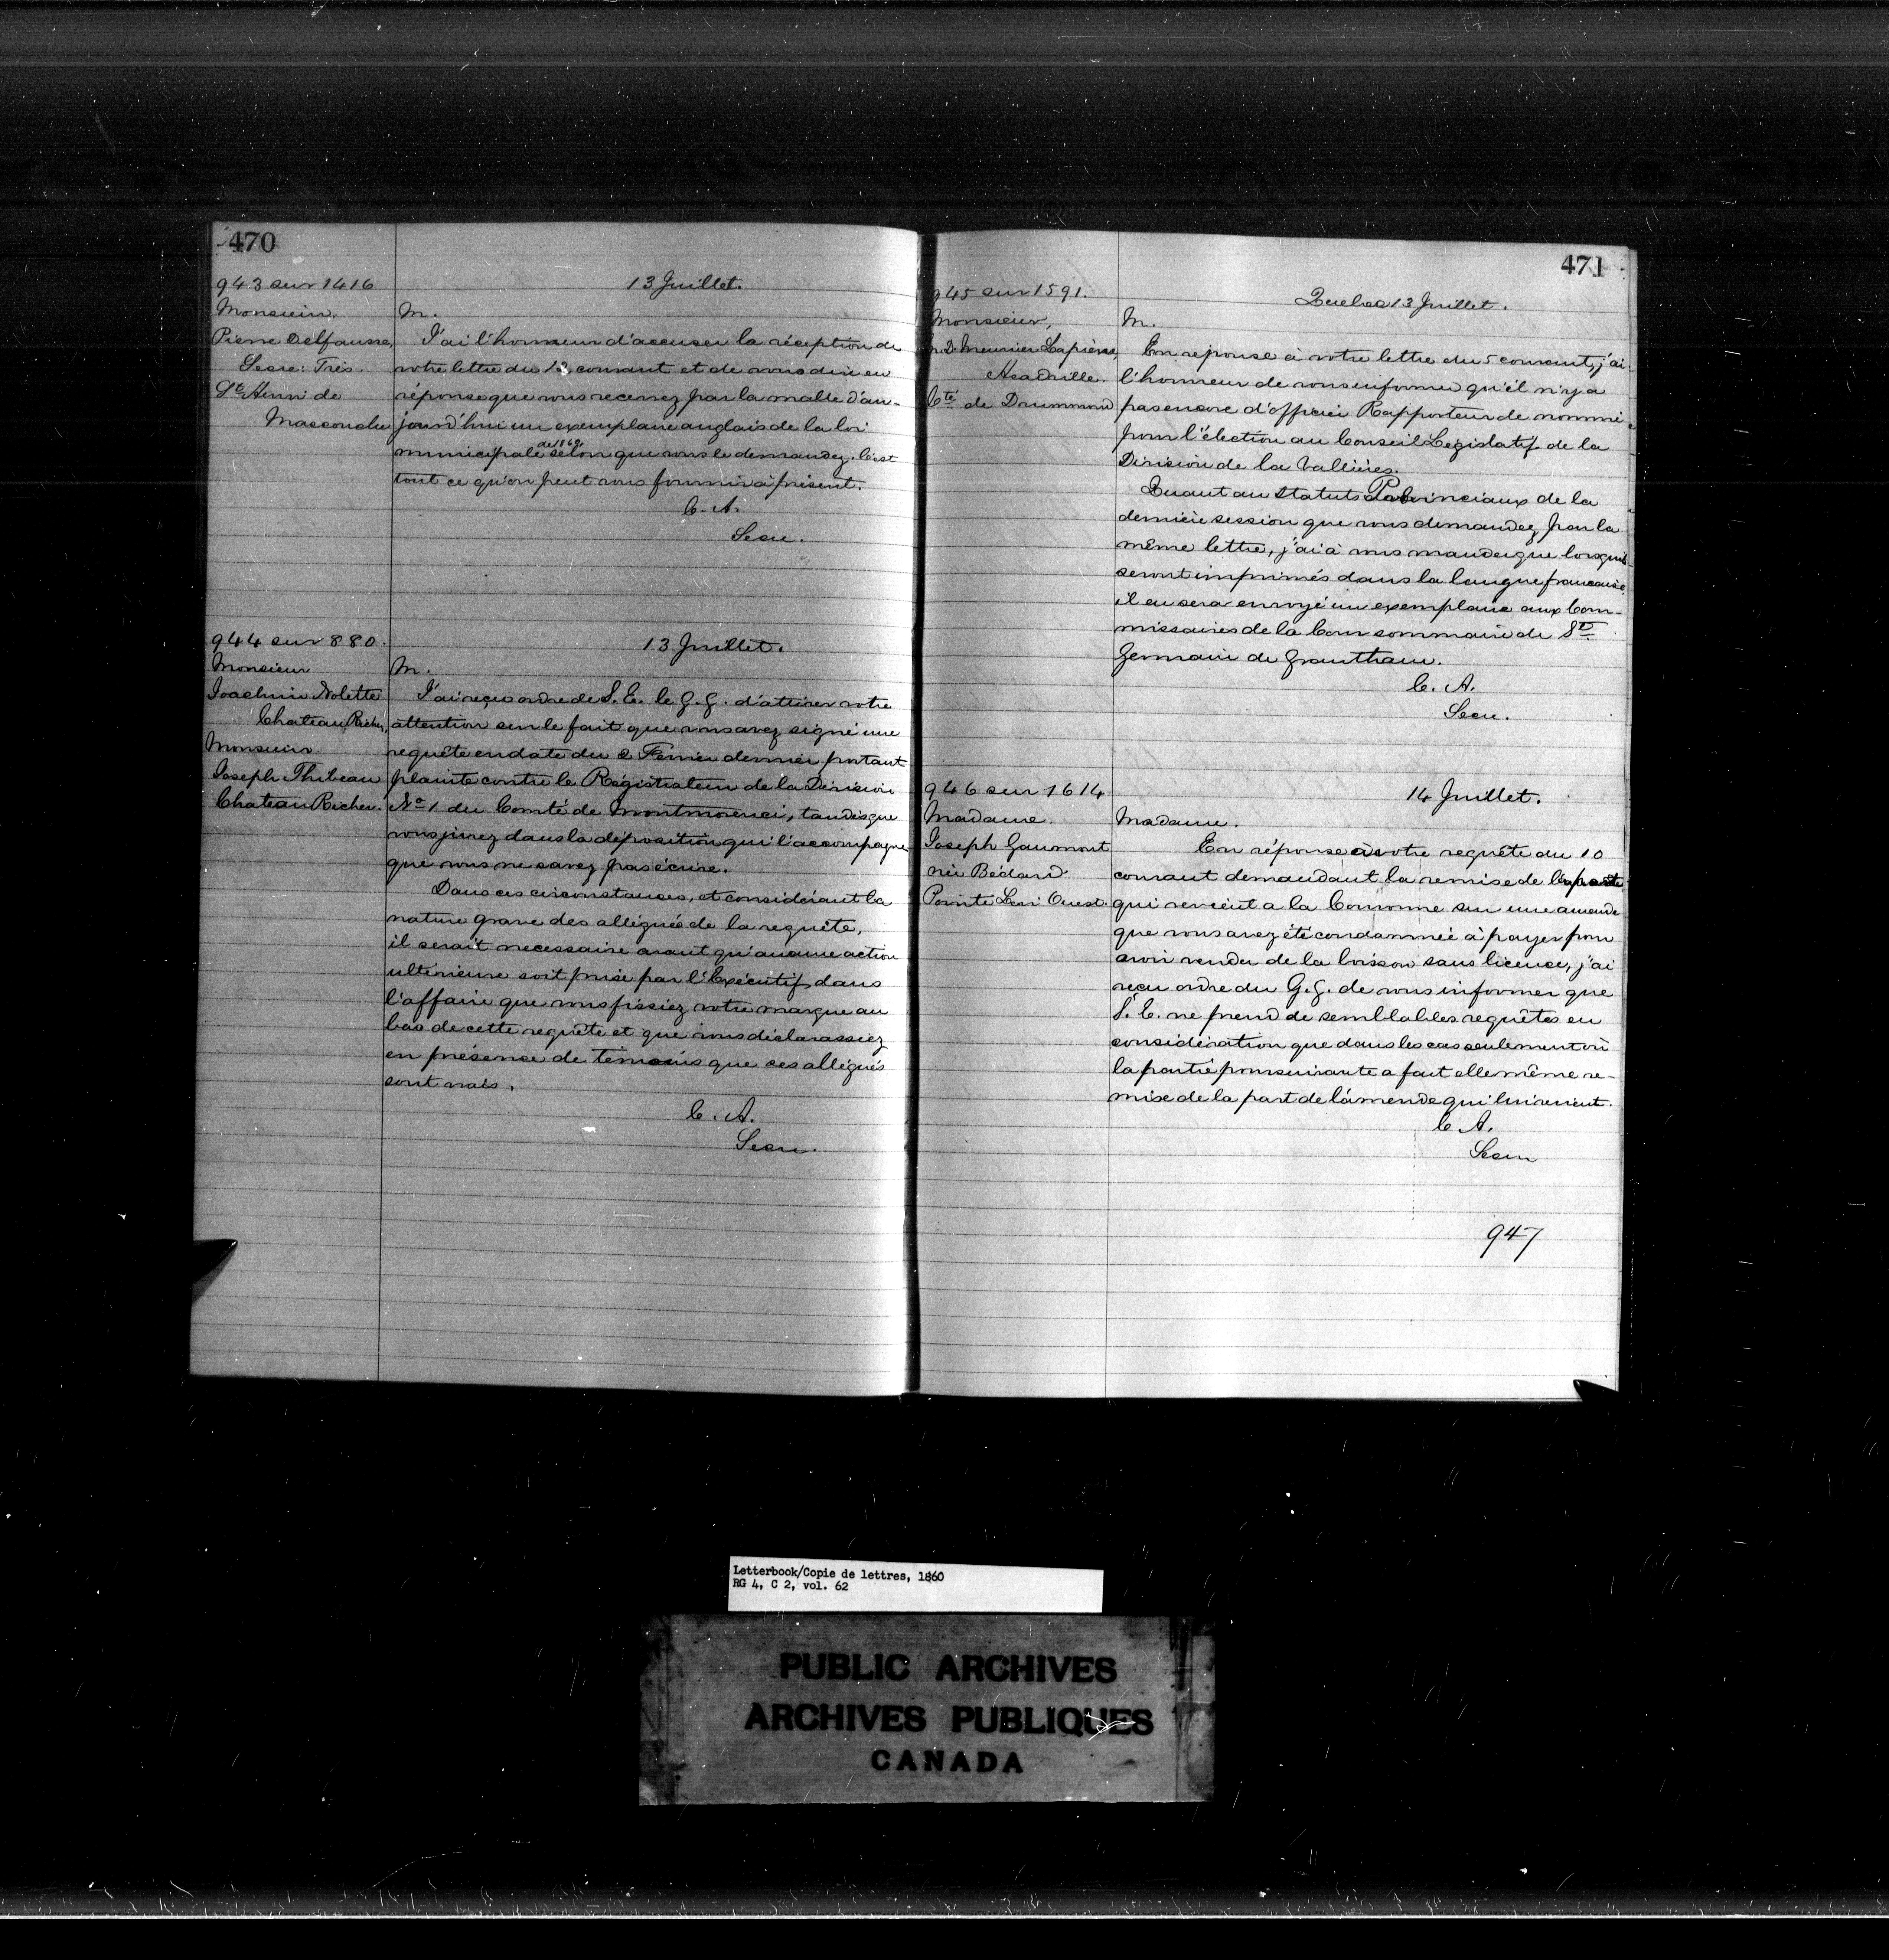 470
943 sur 1416
13 Juillet.
Monsieur.
Pierre Delfausse,
Secre: Trés.
St Henri de
Mascouche
M.
J'ai l'honneur d'accuser la réception de
votre lettre du 12 courant et de vous dire en
réponse que vous recevrez par la malle d'au-
jourd'hui un exemplaire anglais de la loi
de 1860
municipale selon que vous le demandez. C'est
tout ce qu'on peut vous fournir à présent.
C. A.
Secre.
944 sur 880.
13 Juillet.
Monsieur
Joachim Nolette
Chateau Richer,
Monsieur
Joseph Thibeau
Chateau Richer.
M.
J'ai reçu ordre de S. E. le G. G. d'attirer votre
attention sur le fait que vous avez signé une
requête en date du 2 Fevrier dernier portant
plainte contre le Régistrateur de la Division
No 1 du Comté de Montmorenci, tandis que
vous jurez dans la déposition qui l'accompagne
que vous ne savez pas écrire.
Dans ces circonstances, et considérant la
nature grave des allégués de la requête,
il serait necessaire avant qu'aucune action
ultérieure soit prise par l'Exécutif dans
l'affaire que vous fissiez votre marque au
bas de cette requête et que vous déclarassiez
en présence de témoins que ces allégués
sont vrais.
C. A.
Secre.
471
945 sur 1591.
Quebec 13 Juillet.
Monsieur,
D. Meunier Lapierre,
Acadville.
Cté de Drummond
M.
En réponse à votre lettre du 5 courant, j'ai
l'honneur de vous informer qu'il n'y a
pas encore d'officier Rapporteur de nommé
pour l'élection au Conseil Législatif de la
Division de la Vallières.
Quant au Statuts Provinciaux de la
dernière session que vous demandez par la
même lettre, j'ai à vous mander que lorsqu'ils
seront imprimés dans la langue francaise
il en sera envoyé un exemplaire aux Com-
missaires de la Cour sommaire de St
Germain de Grantham.
C. A.
Secre.
946 sur 1614
14 Juillet.
Madame.
Joseph Gaumont
née Bédard
Pointe Levi Ouest.
Madame.
En réponse à votre requête du 10
courant demandant la remise de la part
qui revient a la Couronne sur une amende
que vous avez été condamnée à payer pour
avoir vendu de la boisson sans licence, j'ai
reçu ordre du G. G. de vous informer que
S. E. ne prend de semblables requêtes en
considération que dans les cas seulement où
la partie poursuivante a fait elle même re-
mise de la part de l'amende qui lui revient.
C. A.
Secre
947
Letterbook/Copie de lettres, 1860
RG 4, C 2, vol. 62
PUBLIC ARCHIVES
ARCHIVES PUBLIQUES
CANADA